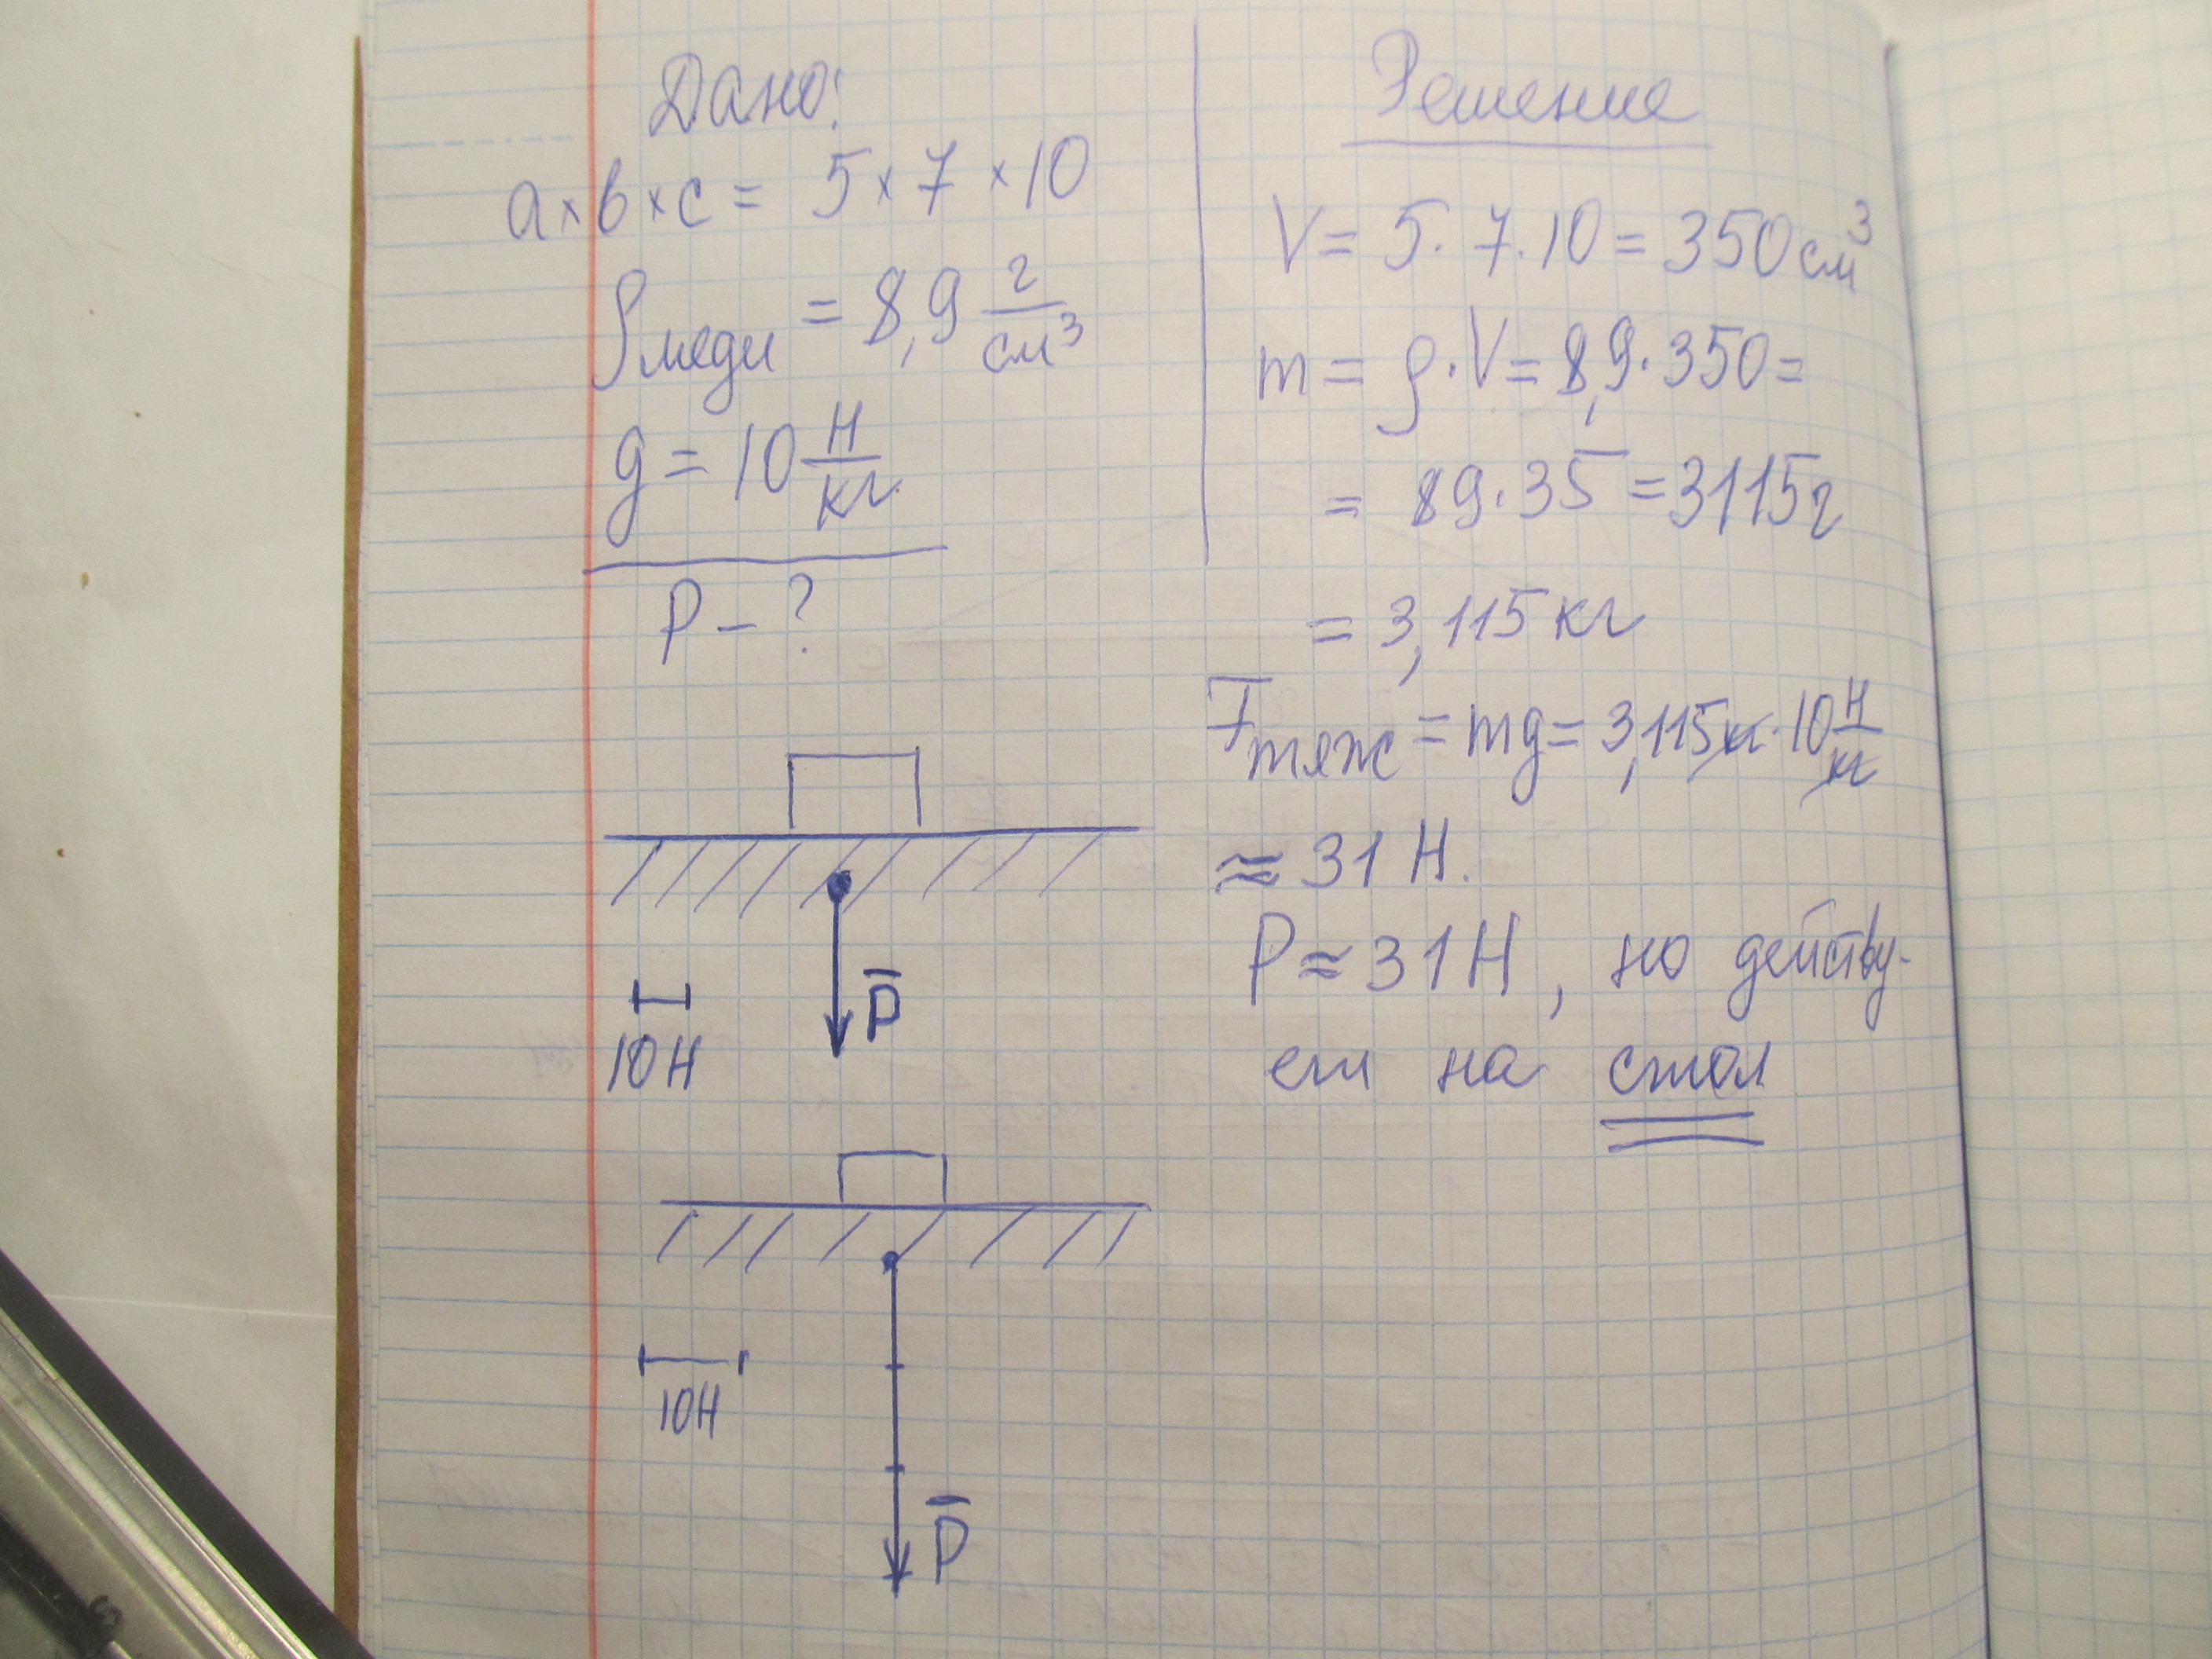 Дано:
a × b × c = 5 × 7 × 10
ρ меди = 8,9 г/см³
g = 10 Н/кг
P – ?
10 Н
P̄
10 Н
P̄
Решение
V = 5 · 7 · 10 = 350 см³
m = ρ · V = 8,9 · 350 =
= 89 · 35 = 3115 г
= 3,115 кг
Fтяж = mg = 3,115 кг · 10 Н/кг
≈ 31 Н.
P ≈ 31 Н, но действу-
ет на стол